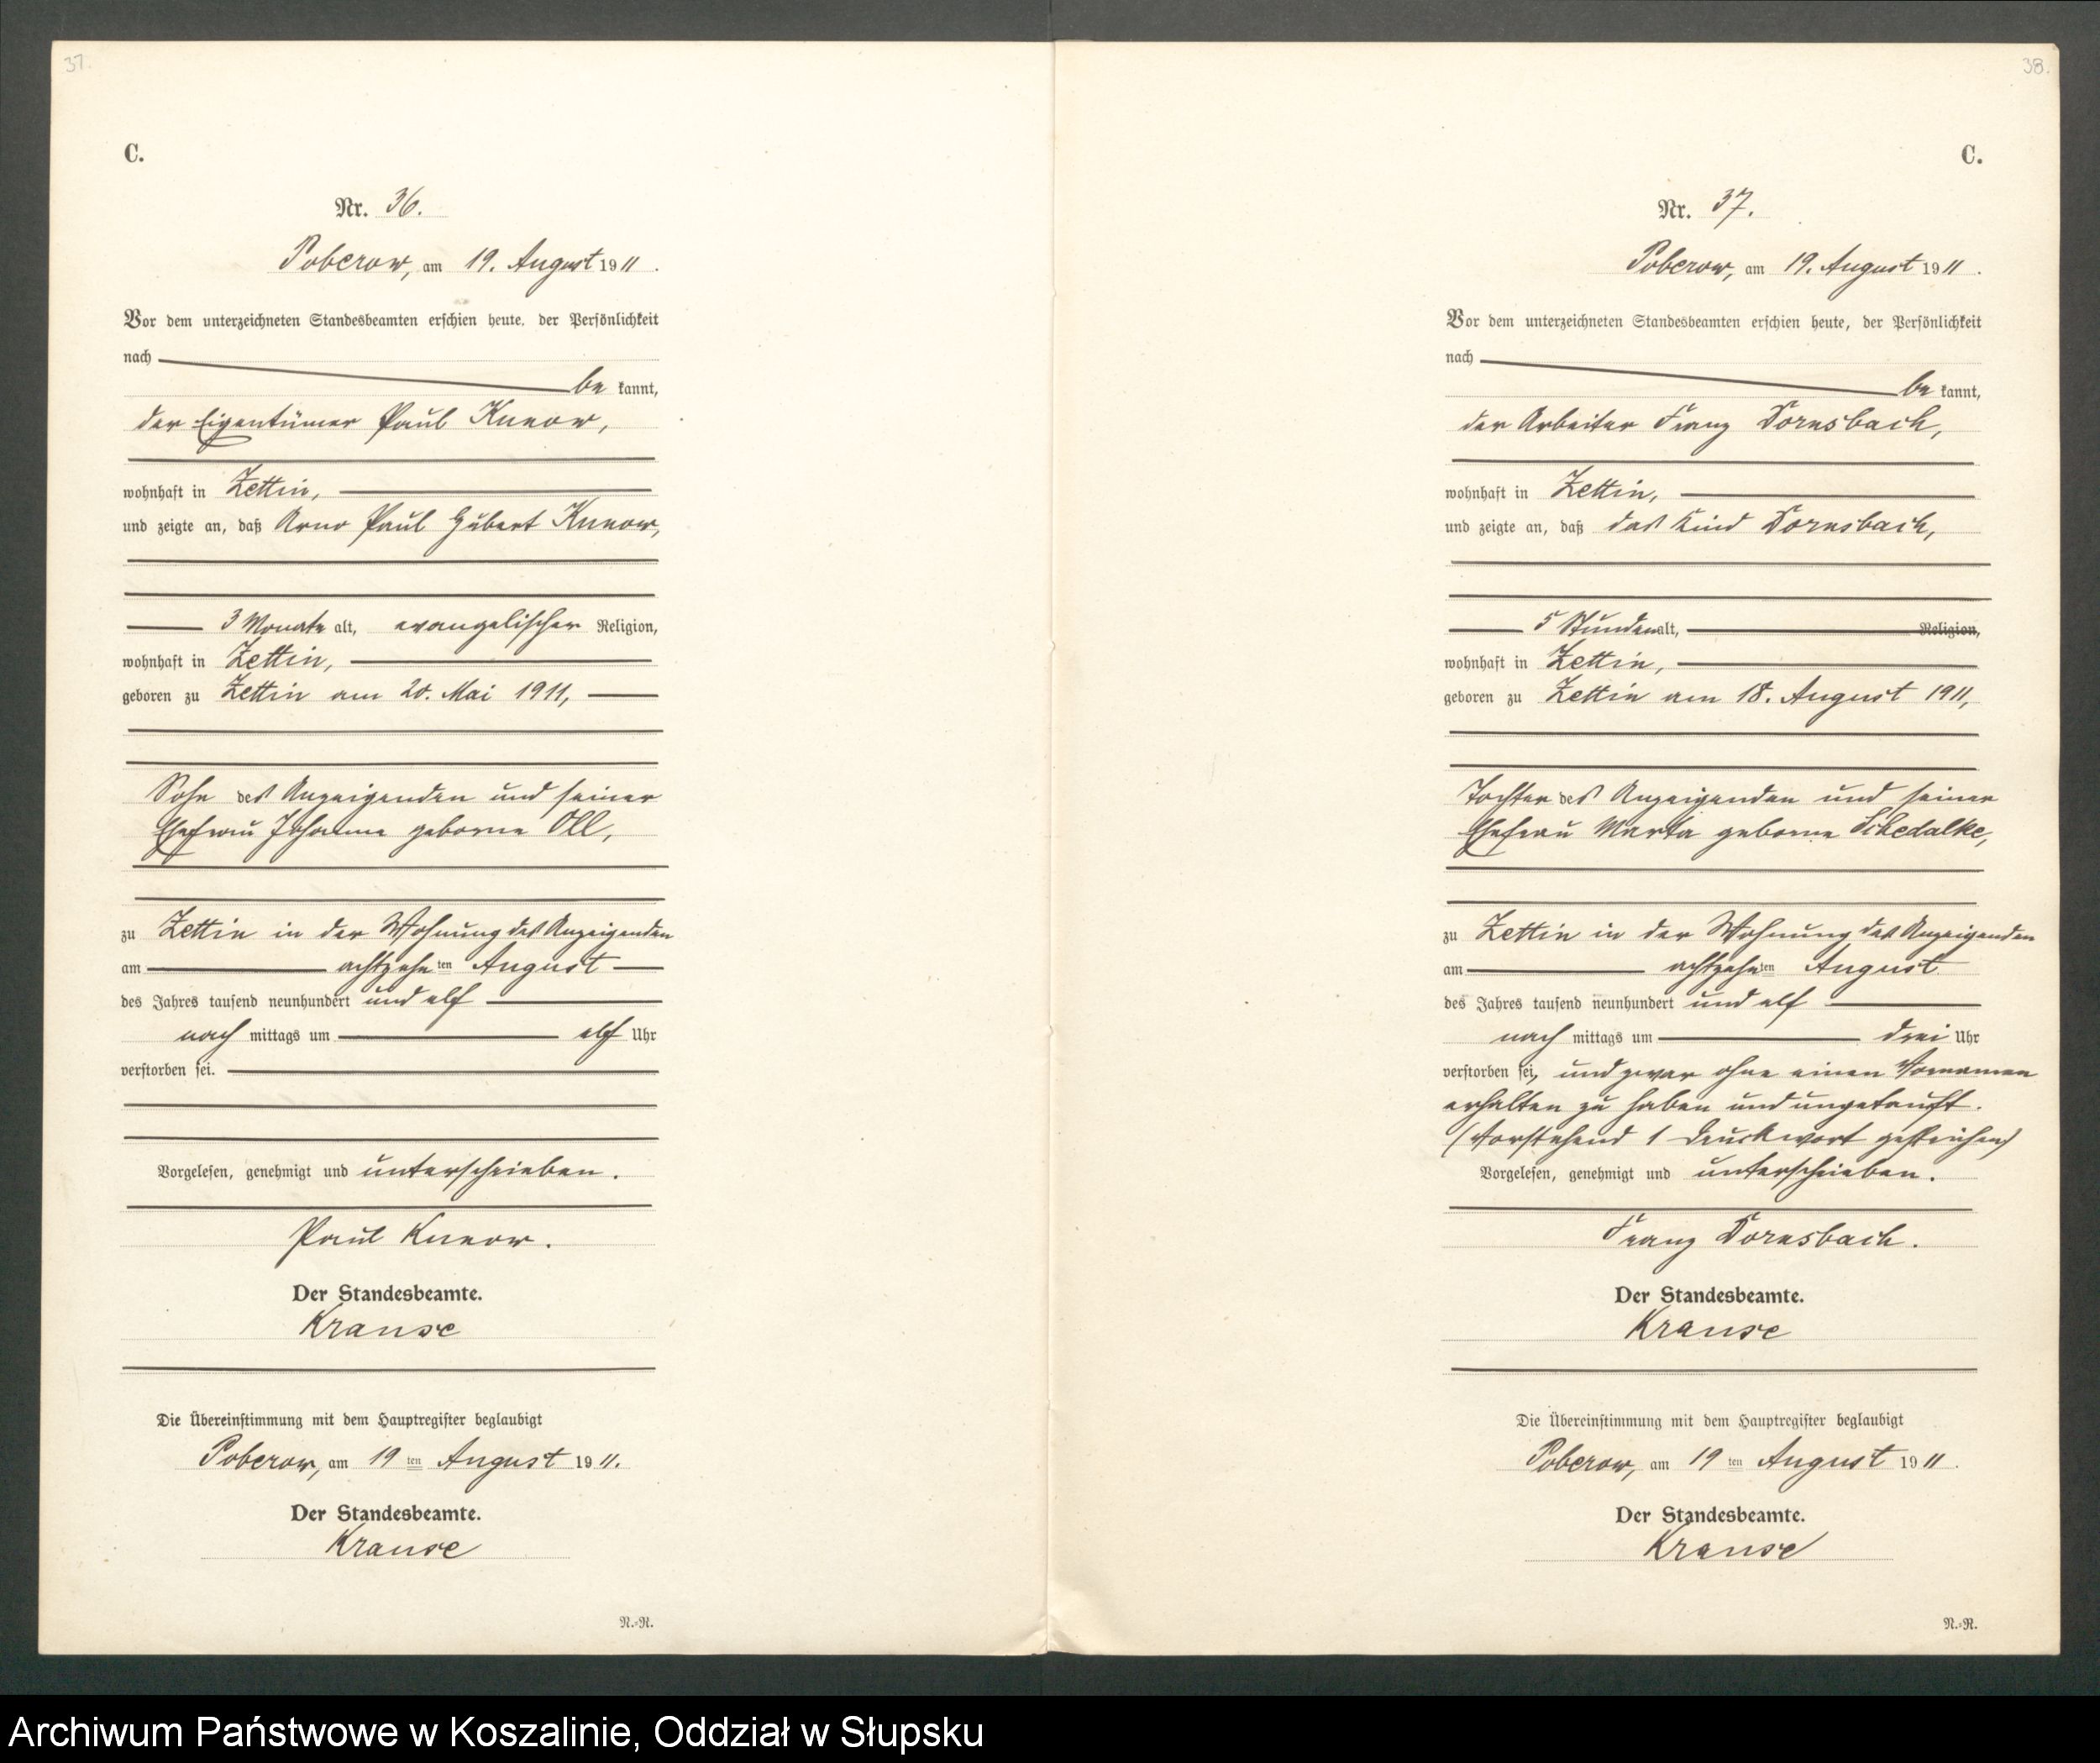 37.
C.
Nr. 36.
Poberow, am 19. August 1911.
Vor dem unterzeichneten Standesbeamten erschien heute, der Persönlichkeit
nach
be kannt,
der Eigentümer Paul Kunow,
wohnhaft in Zettin,
und zeigte an, daß Arno Paul Hubert Kunow,
3 Monate alt, evangelischer Religion,
wohnhaft in Zettin,
geboren zu Zettin am 20. Mai 1911,
Sohn des Anzeigenden und seiner
Ehefrau Johanna geborne Oll,
zu Zettin in der Wohnung des Anzeigenden
am achtzehnten August
des Jahres tausend neunhundert und elf
nach mittags um elf Uhr
verstorben sei.
Vorgelesen, genehmigt und unterschrieben.
Paul Kunow.
Der Standesbeamte.
Krause
Die Übereinstimmung mit dem Hauptregister beglaubigt
Poberow, am 19 ten August 1911.
Der Standesbeamte.
Krause
N.-R.
38.
C.
Nr. 37.
Poberow, am 19. August 1911.
Vor dem unterzeichneten Standesbeamten erschien heute, der Persönlichkeit
nach
be kannt,
der Arbeiter Franz Dornsbach,
wohnhaft in Zettin,
und zeigte an, daß das Kind Dornsbach,
5 Stunden alt, Religion,
wohnhaft in Zettin,
geboren zu Zettin am 18. August 1911,
Tochter des Anzeigenden und seiner
Ehefrau Marta geborne Schedalke,
zu Zettin in der Wohnung des Anzeigenden
am achtzehnten August
des Jahres tausend neunhundert und elf
nach mittags um drei Uhr
verstorben sei, und zwar ohne einen Vornamen
erhalten zu haben und ungetauft.
(Vorstehend 1 Druckwort gestrichen)
Vorgelesen, genehmigt und unterschrieben.
Franz Dornsbach.
Der Standesbeamte.
Krause
Die Übereinstimmung mit dem Hauptregister beglaubigt
Poberow, am 19 ten August 1911.
Der Standesbeamte.
Krause
N.-R.
Archiwum Państwowe w Koszalinie, Oddział w Słupsku